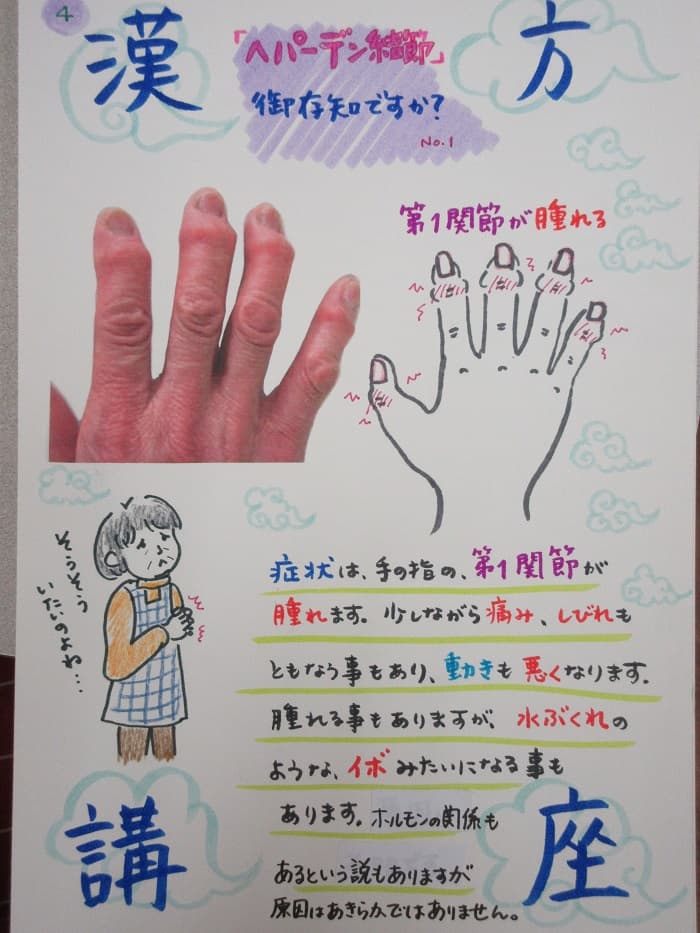 4
漢方
「ヘバーデン結節」
御存知ですか?
No.1
第1関節が腫れる
そうそう
いたいのよね…
症状は、手の指の、第1関節が
腫れます。少しながら痛み、しびれも
ともなう事もあり、動きも悪くなります。
腫れる事もありますが、水ぶくれの
ような、イボみたいになる事も
あります。ホルモンの関係も
あるという説もありますが
原因はあきらかではありません。
講座